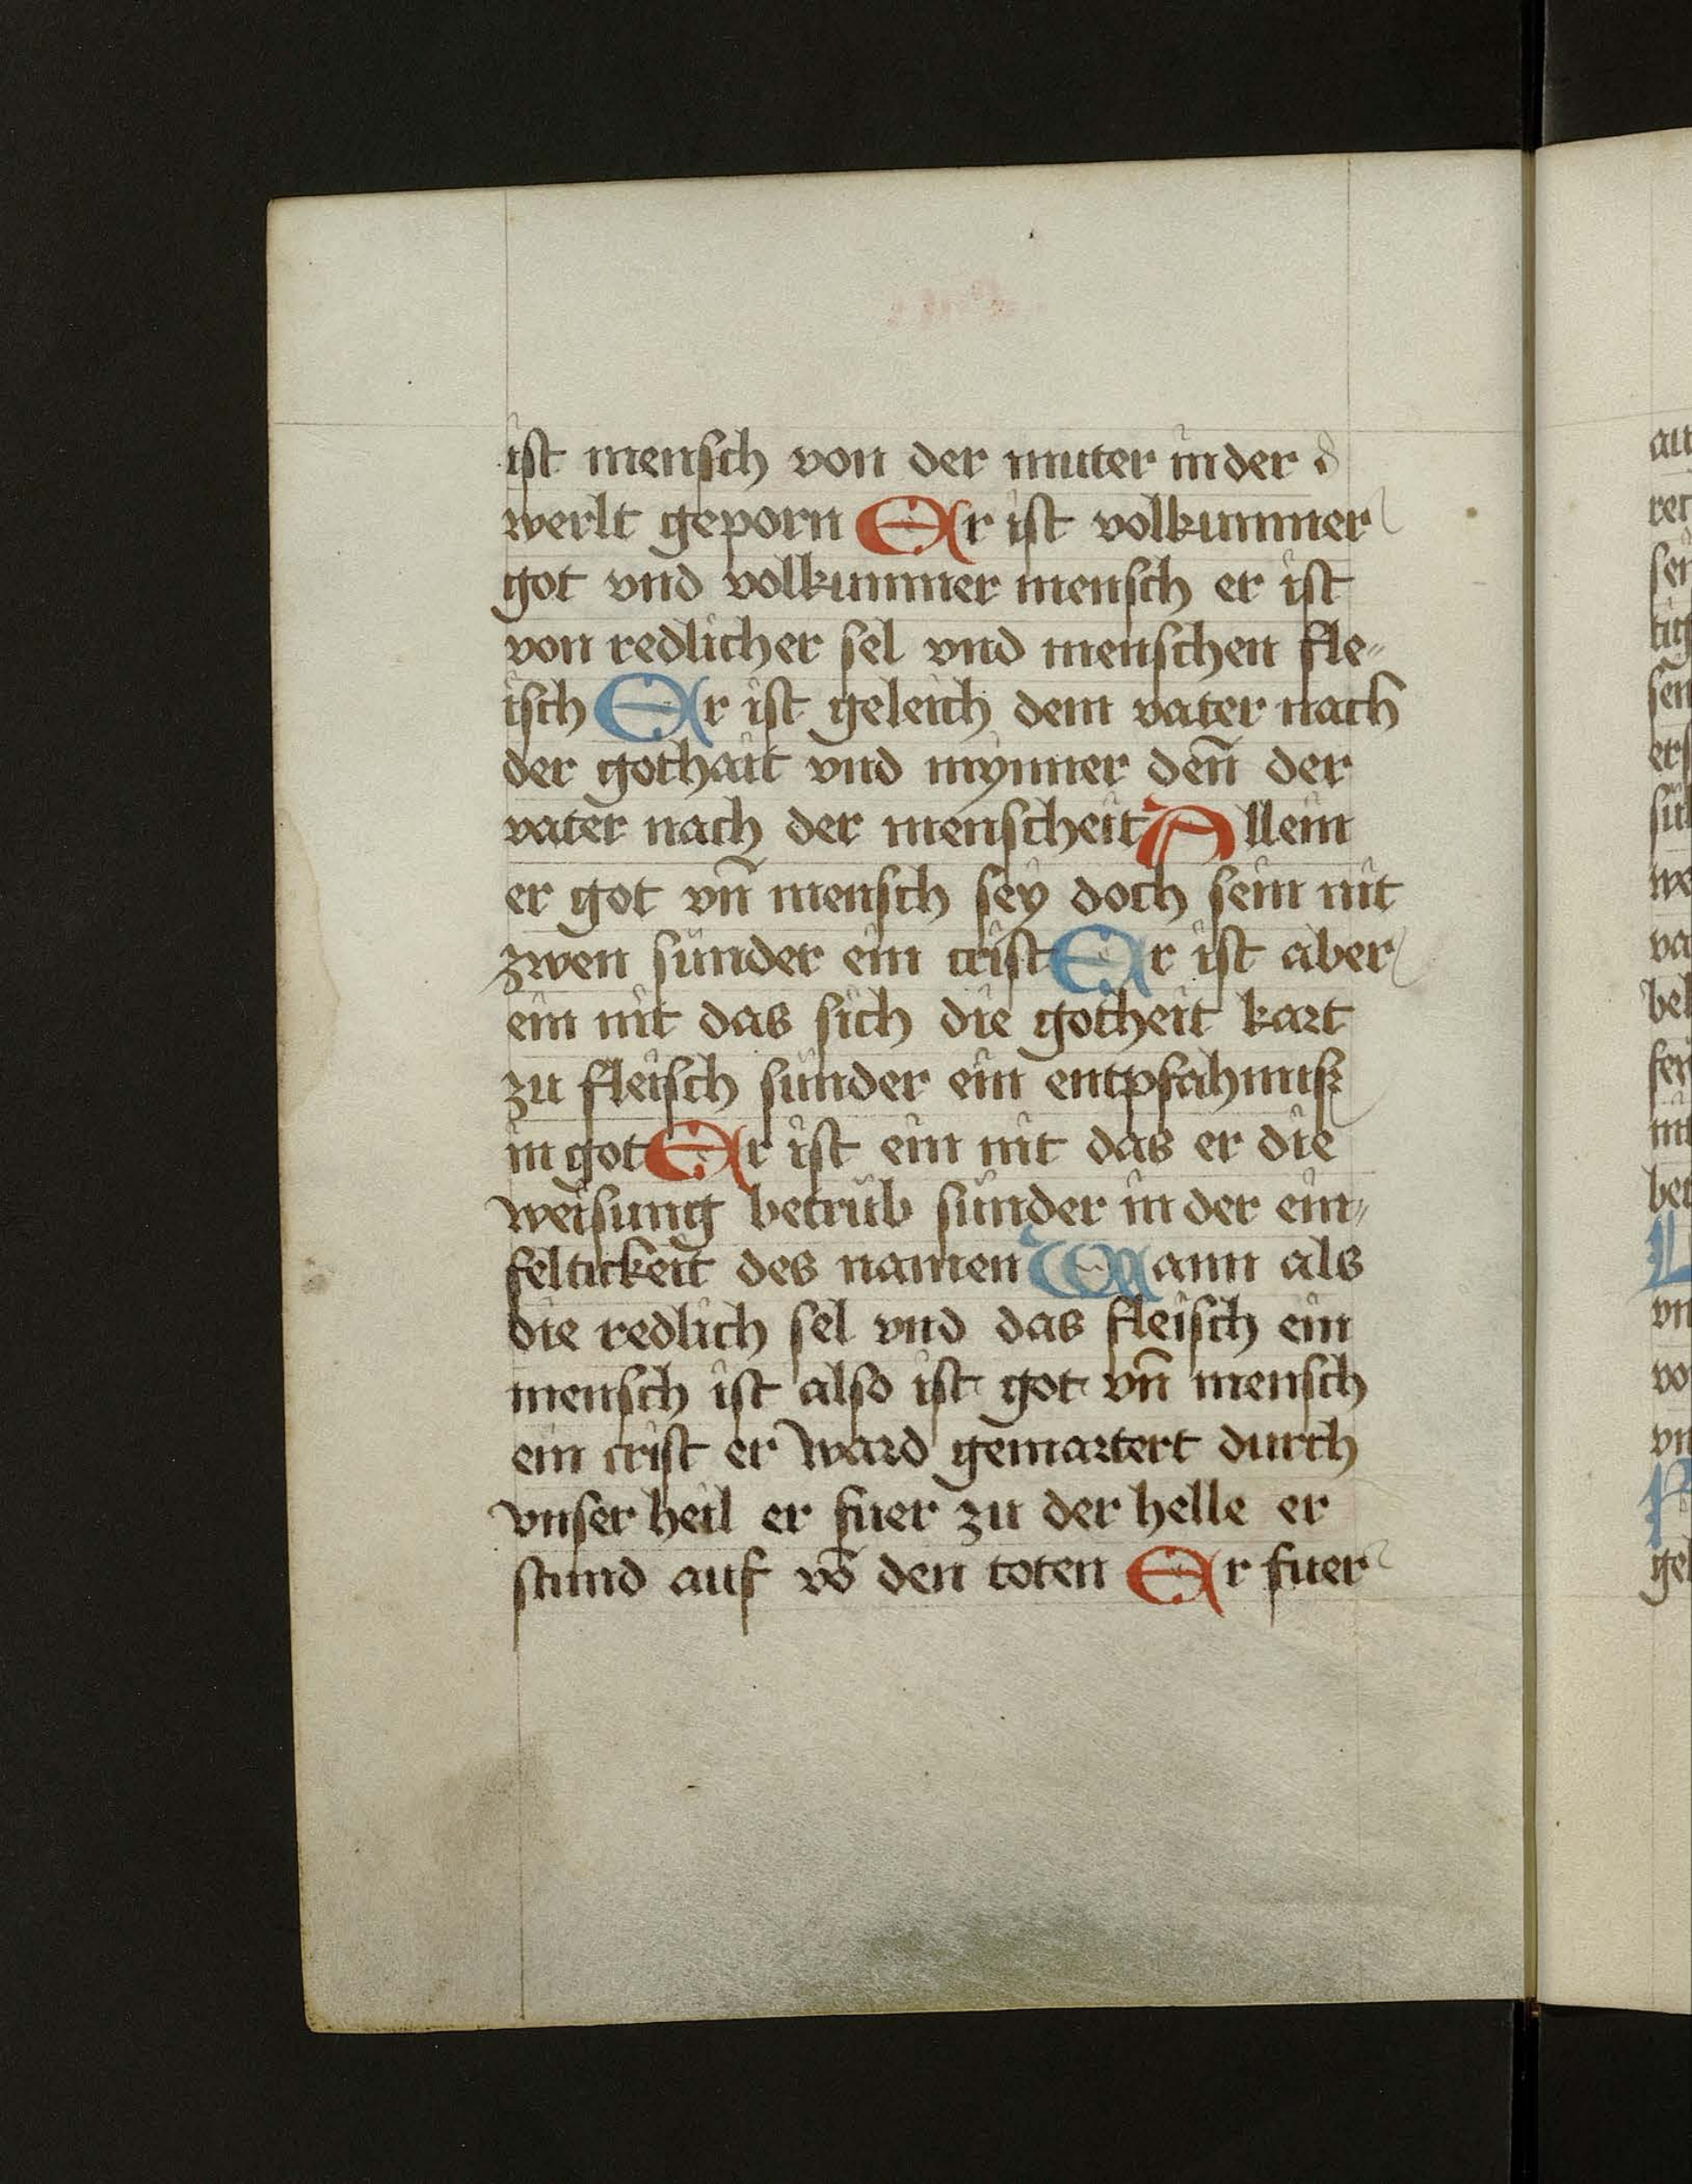 ist mensch von der muter in der
werlt geporn Er ist volkummer
got vnd volkummer mensch er ist
von redlicher sel vnd menschen fle-
isch Er ist geleich dem vater nach
der gothait vnd mynner den̄ der
vater nach der menscheit Allein
er got vn̄ mensch sey doch sein nit
zwen sunder ein crist Er ist aber
ein nit das sich die gotheit kart
zu fleisch sunder ein entpfahnuß
in got Er ist ein nit das er die
weisung betrüb sunder in der ein-
feltickeit des namen Wann als
die redlich sel vnd das fleisch ein
mensch ist also ist got vn̄ mensch
ein crist er ward gemartert durch
vnser heil er fuer zu der helle er
stund auf vō den toten Er fuer